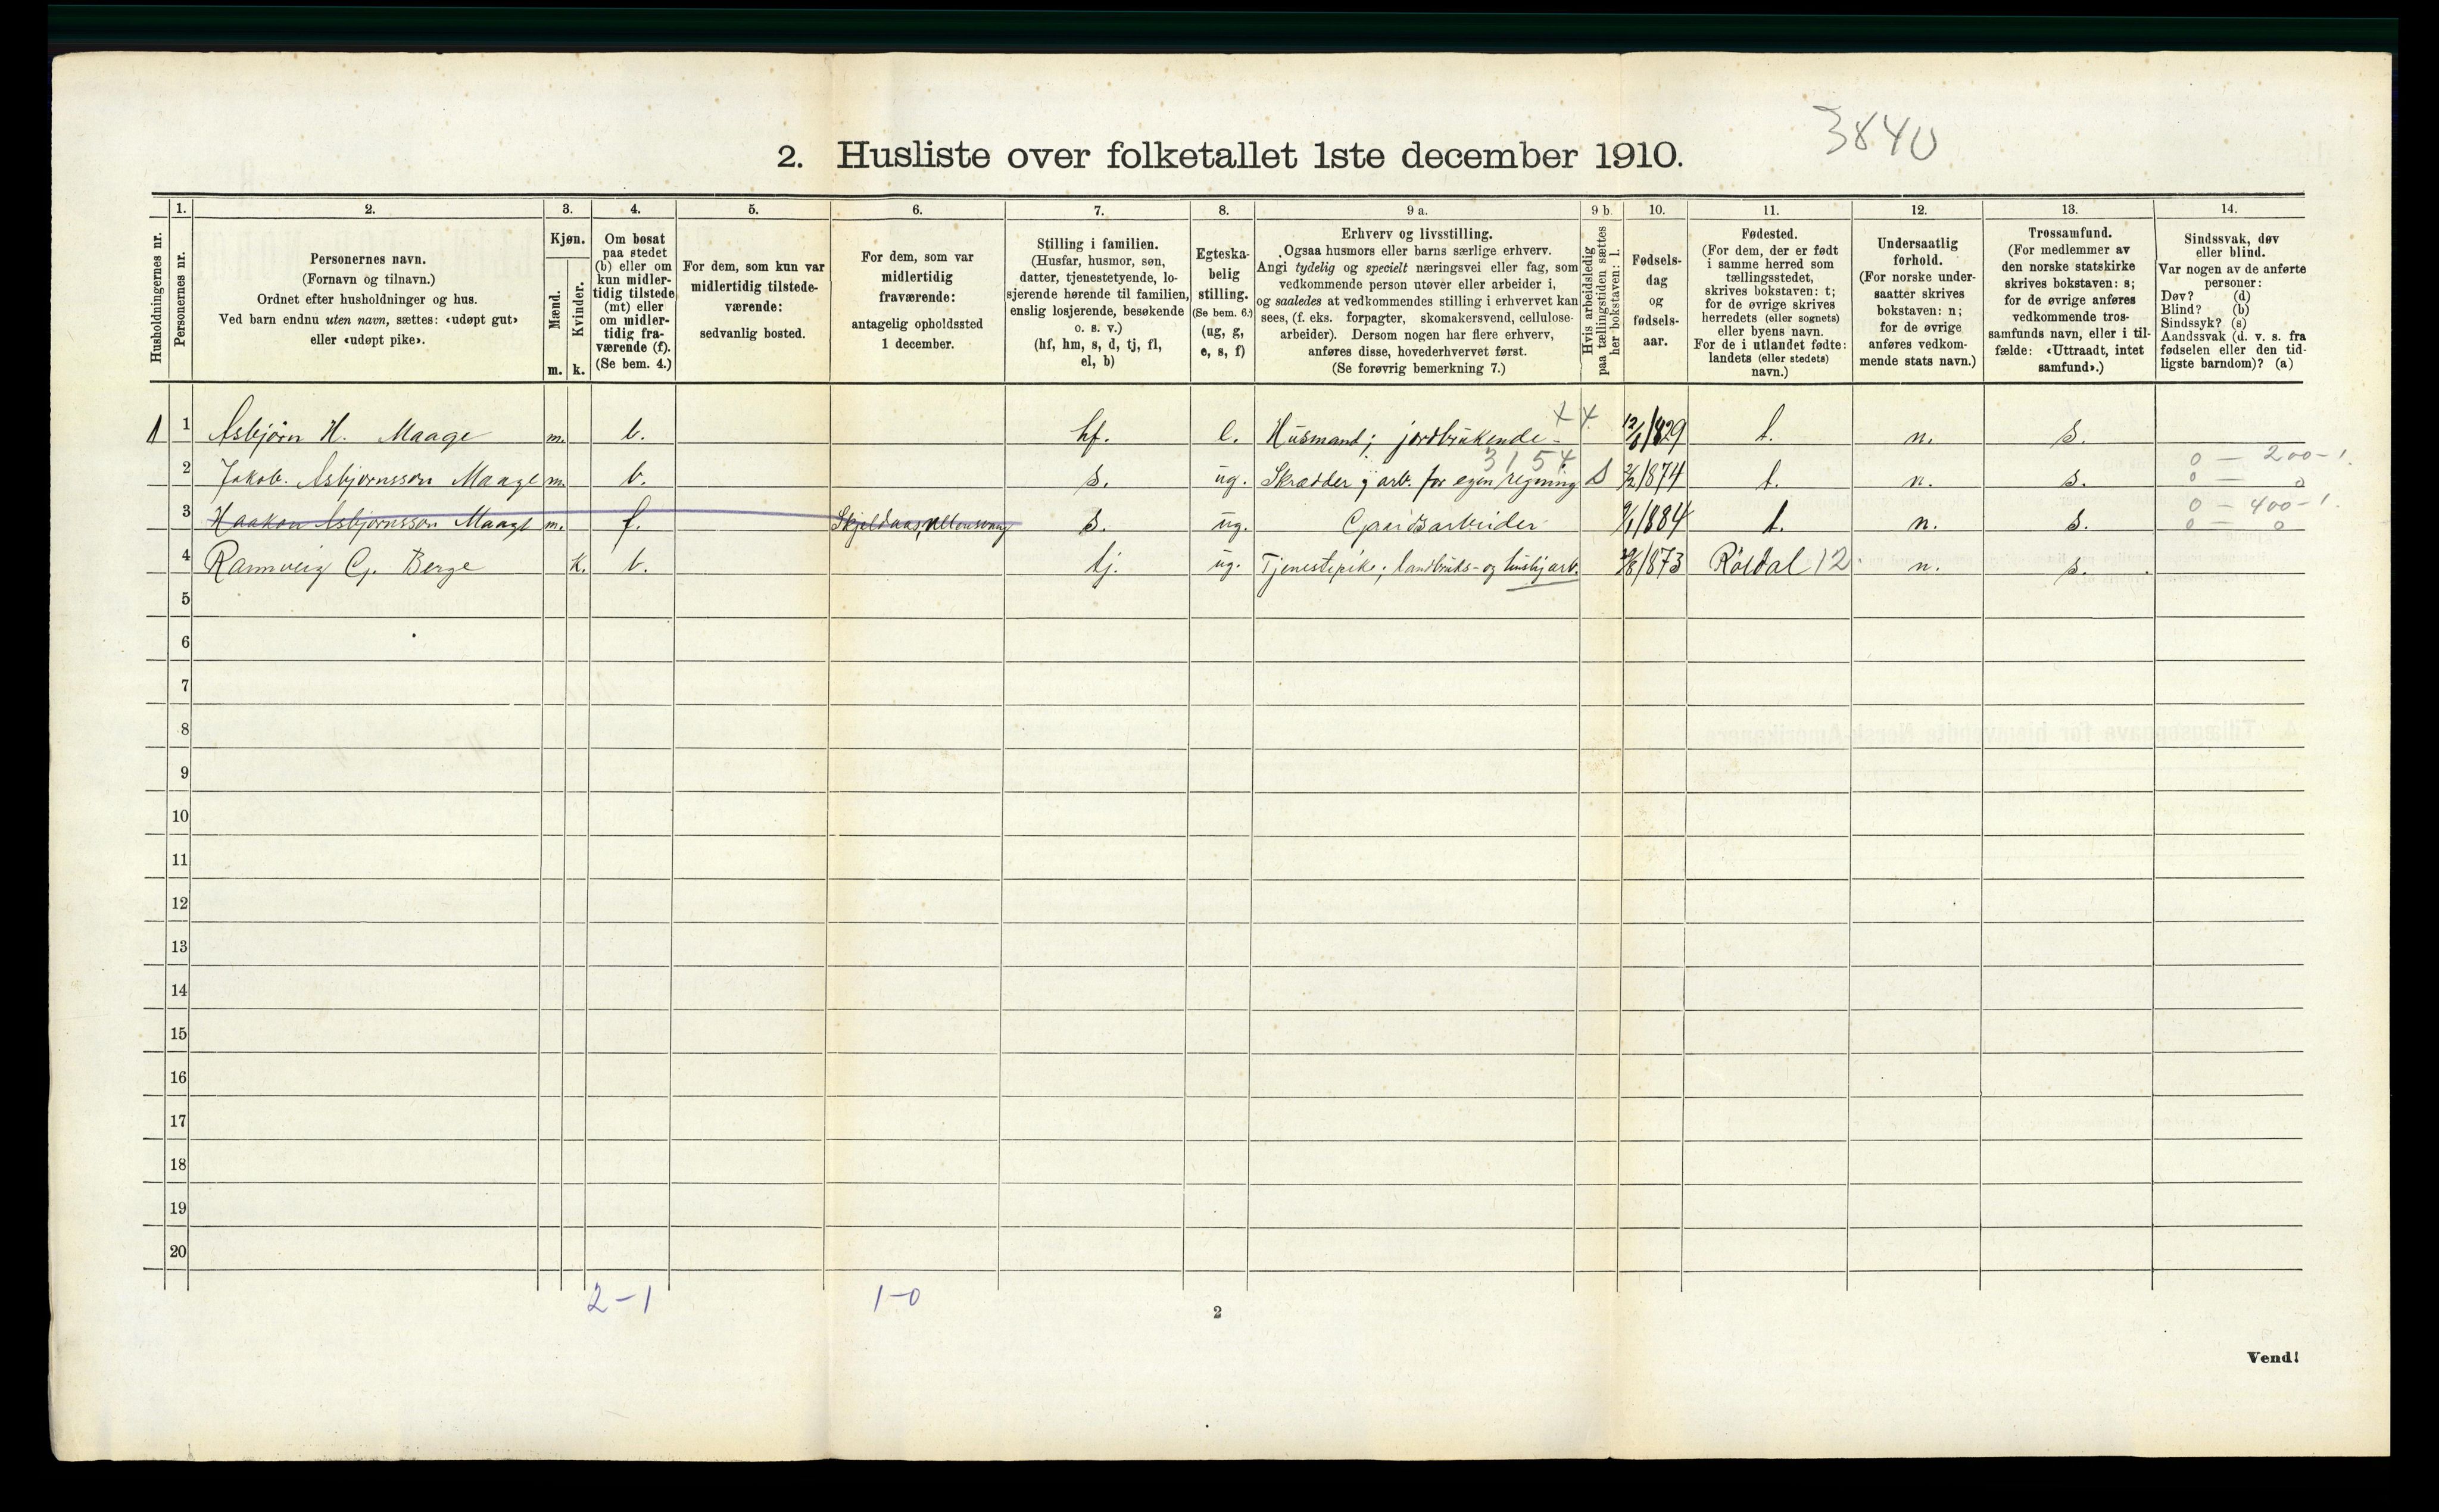 3840
2. Husliste over folketallet 1ste december 1910.
Husholdningernes nr.
1.
Personernes nr.
2.
Personernes navn.
(Fornavn og tilnavn.)
Ordnet efter husholdninger og hus.
Ved barn endnu uten navn, sættes: «udøpt gut»
eller «udøpt pike».
3.
Kjøn.
Mænd.
Kvinder.
m. k.
4.
Om bosat
paa stedet
(b) eller om
kun midler-
tidig tilstede
(mt) eller
om midler-
tidig fra-
værende (f).
(Se bem. 4.)
5.
For dem, som kun var
midlertidig tilstede-
værende:
sedvanlig bosted.
6.
For dem, som var
midlertidig
fraværende:
antagelig opholdssted
1 december.
7.
Stilling i familien.
(Husfar, husmor, søn,
datter, tjenestetyende, lo-
sjerende hørende til familien,
enslig losjerende, besøkende
o. s. v.)
(hf, hm, s, d, tj, fl,
el, b)
8.
Egteska-
belig
stilling.
(Se bem. 6.)
(ug, g,
e, s, f)
9 a.
Erhverv og livsstilling.
Ogsaa husmors eller barns særlige erhverv.
Angi tydelig og specielt næringsvei eller fag, som
vedkommende person utøver eller arbeider i,
og saaledes at vedkommendes stilling i erhvervet kan
sees, (f. eks. forpagter, skomakersvend, cellulose-
arbeider). Dersom nogen har flere erhverv,
anføres disse, hovederhvervet først.
(Se forøvrig bemerkning 7.)
9 b.
Hvis arbeidsledig
paa tællingstiden sættes
her bokstaven: l.
10.
Fødsels-
dag
og
fødsels-
aar.
11.
Fødested.
(For dem, der er født
i samme herred som
tællingsstedet,
skrives bokstaven: t;
for de øvrige skrives
herredets (eller sognets)
eller byens navn.
For de i utlandet fødte:
landets (eller stedets)
navn.)
12.
Undersaatlig
forhold.
(For norske under-
saatter skrives
bokstaven: n;
for de øvrige
anføres vedkom-
mende stats navn.)
13.
Trossamfund.
(For medlemmer av
den norske statskirke
skrives bokstaven: s;
for de øvrige anføres
vedkommende tros-
samfunds navn, eller i til-
fælde: «Uttraadt, intet
samfund».)
14.
Sindssvak, døv
eller blind.
Var nogen av de anførte
personer:
Døv? (d)
Blind? (b)
Sindssyk? (s)
Aandssvak (d. v. s. fra
fødselen eller den tid-
ligste barndom)? (a)
1 1 Asbjørn H. Maage m. b. hf. e. Husmand; jordbrukende 12/6/829 t. n. s.
3154 0 — 200-1.
2 Jakob Asbjørnsson Maage m. b. s. ug. Skrædder; arb. for egen regning 2/2/874 t. n. s. 0 — 0
0 — 400-1.
3 Haakon Asbjørnsson Maage m. f. Skjeldaas, Ullensvang s. ug. Gaardsarbeider 9/1/884 t. n. s. 0 — 0
4 Rannveig G. Berge k. b. tj. ug. Tjenestepike; landbruks- og husligarb. /873 Røldal 12 n. s.
5
6
7
8
9
10
11
12
13
14
15
16
17
18
19
20
2-1 1-0
2
Vend!